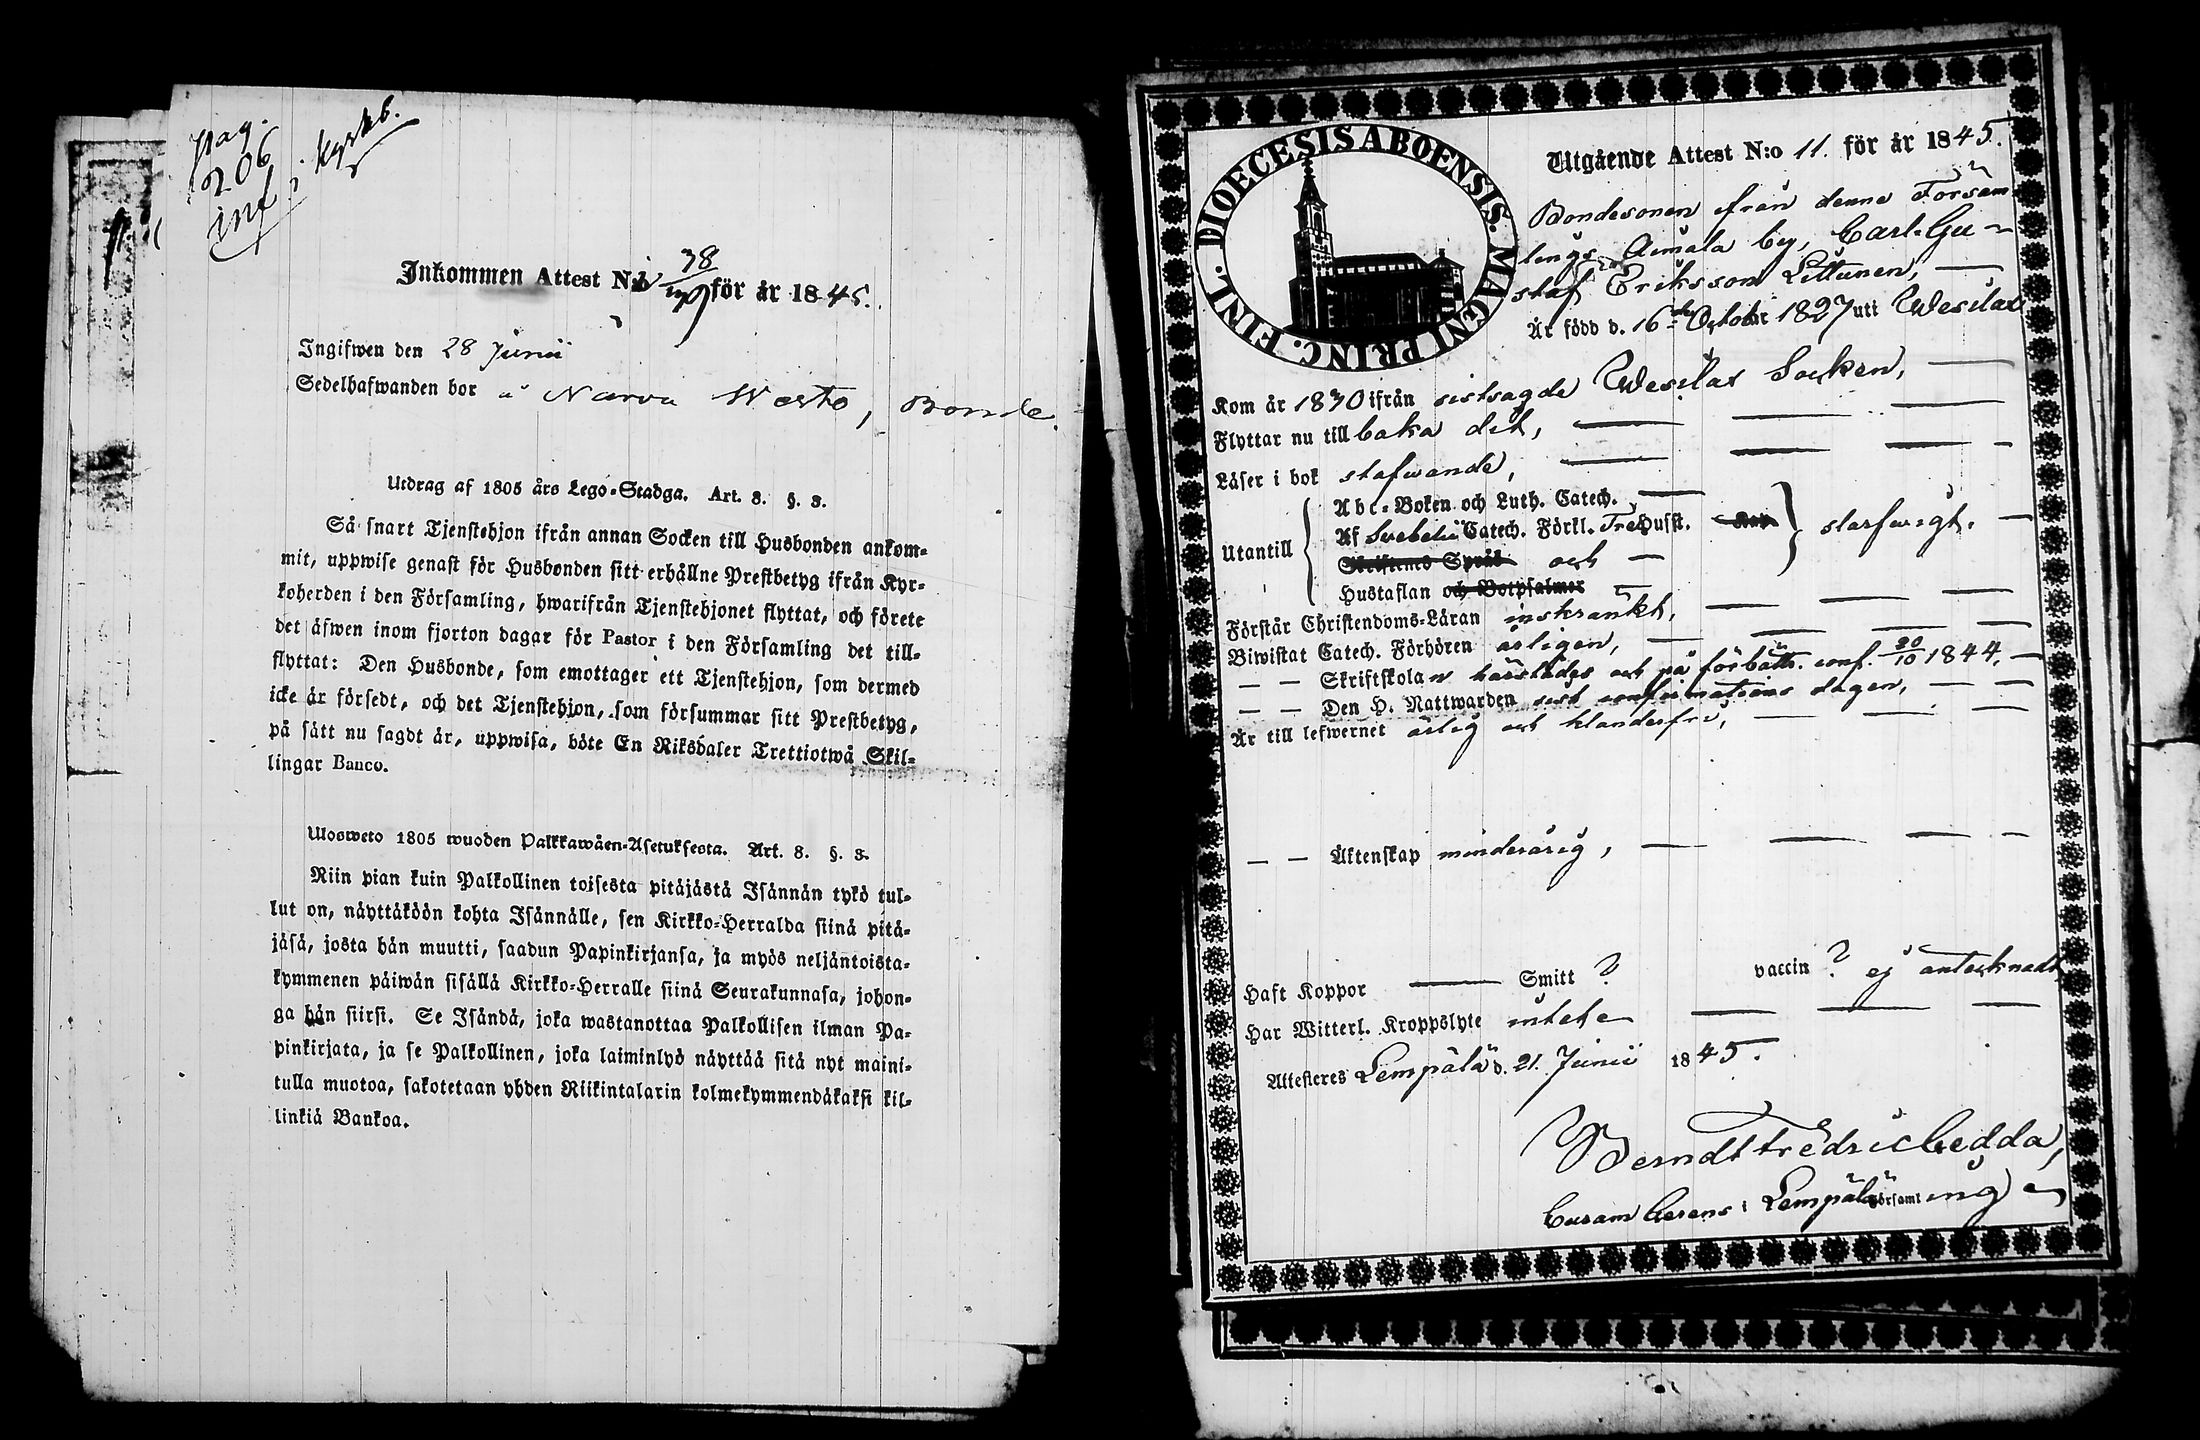 pag.
206
inf. i kyrkb.
Inkommen Attest N:o 78 för år 1845.
Ingifwen den 28 Junii
Sedelhafwanden bor å Narva Westo, Bonde.
Utdrag af 1805 års Lego-Stadga. Art. 8. §. 3.
Så snart Tjenstehjon ifrån annan Socken till Husbonden ankom-
mit, uppwise genast för Husbonden sitt erhållne Prestbetyg ifrån Kyr-
koherden i den Församling, hwarifrån Tjenstehjonet flyttat, och förete
det äfwen inom fjorton dagar för Pastor i den Församling det till-
flyttat: Den Husbonde, som emottager ett Tjenstehjon, som dermed
icke är försedt, och det Tjenstehjon, som försummar sitt Prestbetyg,
på sätt nu sagdt är, uppwisa, böte En Riksdaler Trettiotwå Skil-
lingar Banco.
Ulosweto 1805 wuoden Palkkawäen-Asetuksesta. Art. 8. §. 3.
Niin pian kuin Palkollinen toisesta pitäjästä Isännän tykö tul-
lut on, näyttäköön kohta Isännälle, sen Kirkko-Herralda siinä pitä-
jäsä, josta hän muutti, saadun Papinkirjansa, ja myös neljäntoista-
kymmenen päiwän sisällä Kirkko-Herralle siinä Seurakunnasa, johon-
ga hän siirsi. Se Isändä, joka wastanottaa Palkollisen ilman Pa-
pinkirjata, ja se Palkollinen, joka laiminlyö näyttää sitä nyt maini-
tulla muotoa, sakotetaan yhden Riikintalarin kolmekymmendäkaksi kil-
linkiä Bankoa.
DIOECESIS ABOENSIS. MAGNI PRINC. FINL.
Utgående Attest N:o 11. för år 1845.
Bondesonen från denne Försam-
lings Aimala by, Carl Gu-
staf Eriksson Littunen,
Är född d. 16de Octobr 1827 uti Wesilax
Kom år 1830 ifrån sistsagde Wesilax Socken,
Flyttar nu till baka dit,
Läser i bok stafwande,
Utantill
Abc-Boken och Luth. Catech.
Af Svebelii Catech. Förkl. Tre Hufst. Kap
Skriftenes Språk och
Hustaflan och Botpsalmer
slarfwigt.
Förstår Christendoms-Läran inskränkt,
Biwistat Catech. Förhören årligen,
— — Skriftskolan härstädes och på förbättr. conf. 20/10 1844,
— — Den H. Nattwarden sist confirmations dagen,
Är till lefwernet ärlig och klanderfri,
— — Äktenskap minderårig,
Haft Koppor — Smitt ? vaccin ? ej antecknadt
Har Witterl. Kroppslyte intet
Attesteres Lempälä d. 21. Junii 1845.
Berndt Fredric Gedda,
Curam Gerens i Lempälä Församling